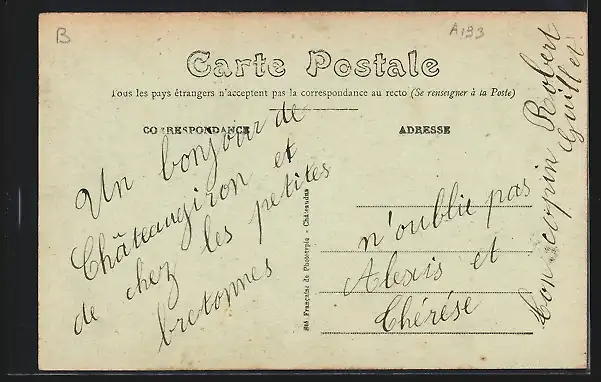 B
A193
Carte Postale
Tous les pays étrangers n'acceptent pas la correspondance au recto (Se renseigner à la Poste)
CORRESPONDANCE
ADRESSE
Un bonjour de
Châteaugiron et
de chez les petites
bretonnes
Sté Française de Phototypie - Châteaudun
n'oublie pas
Alexis et
Thérése
ton copin Robert
Guillet